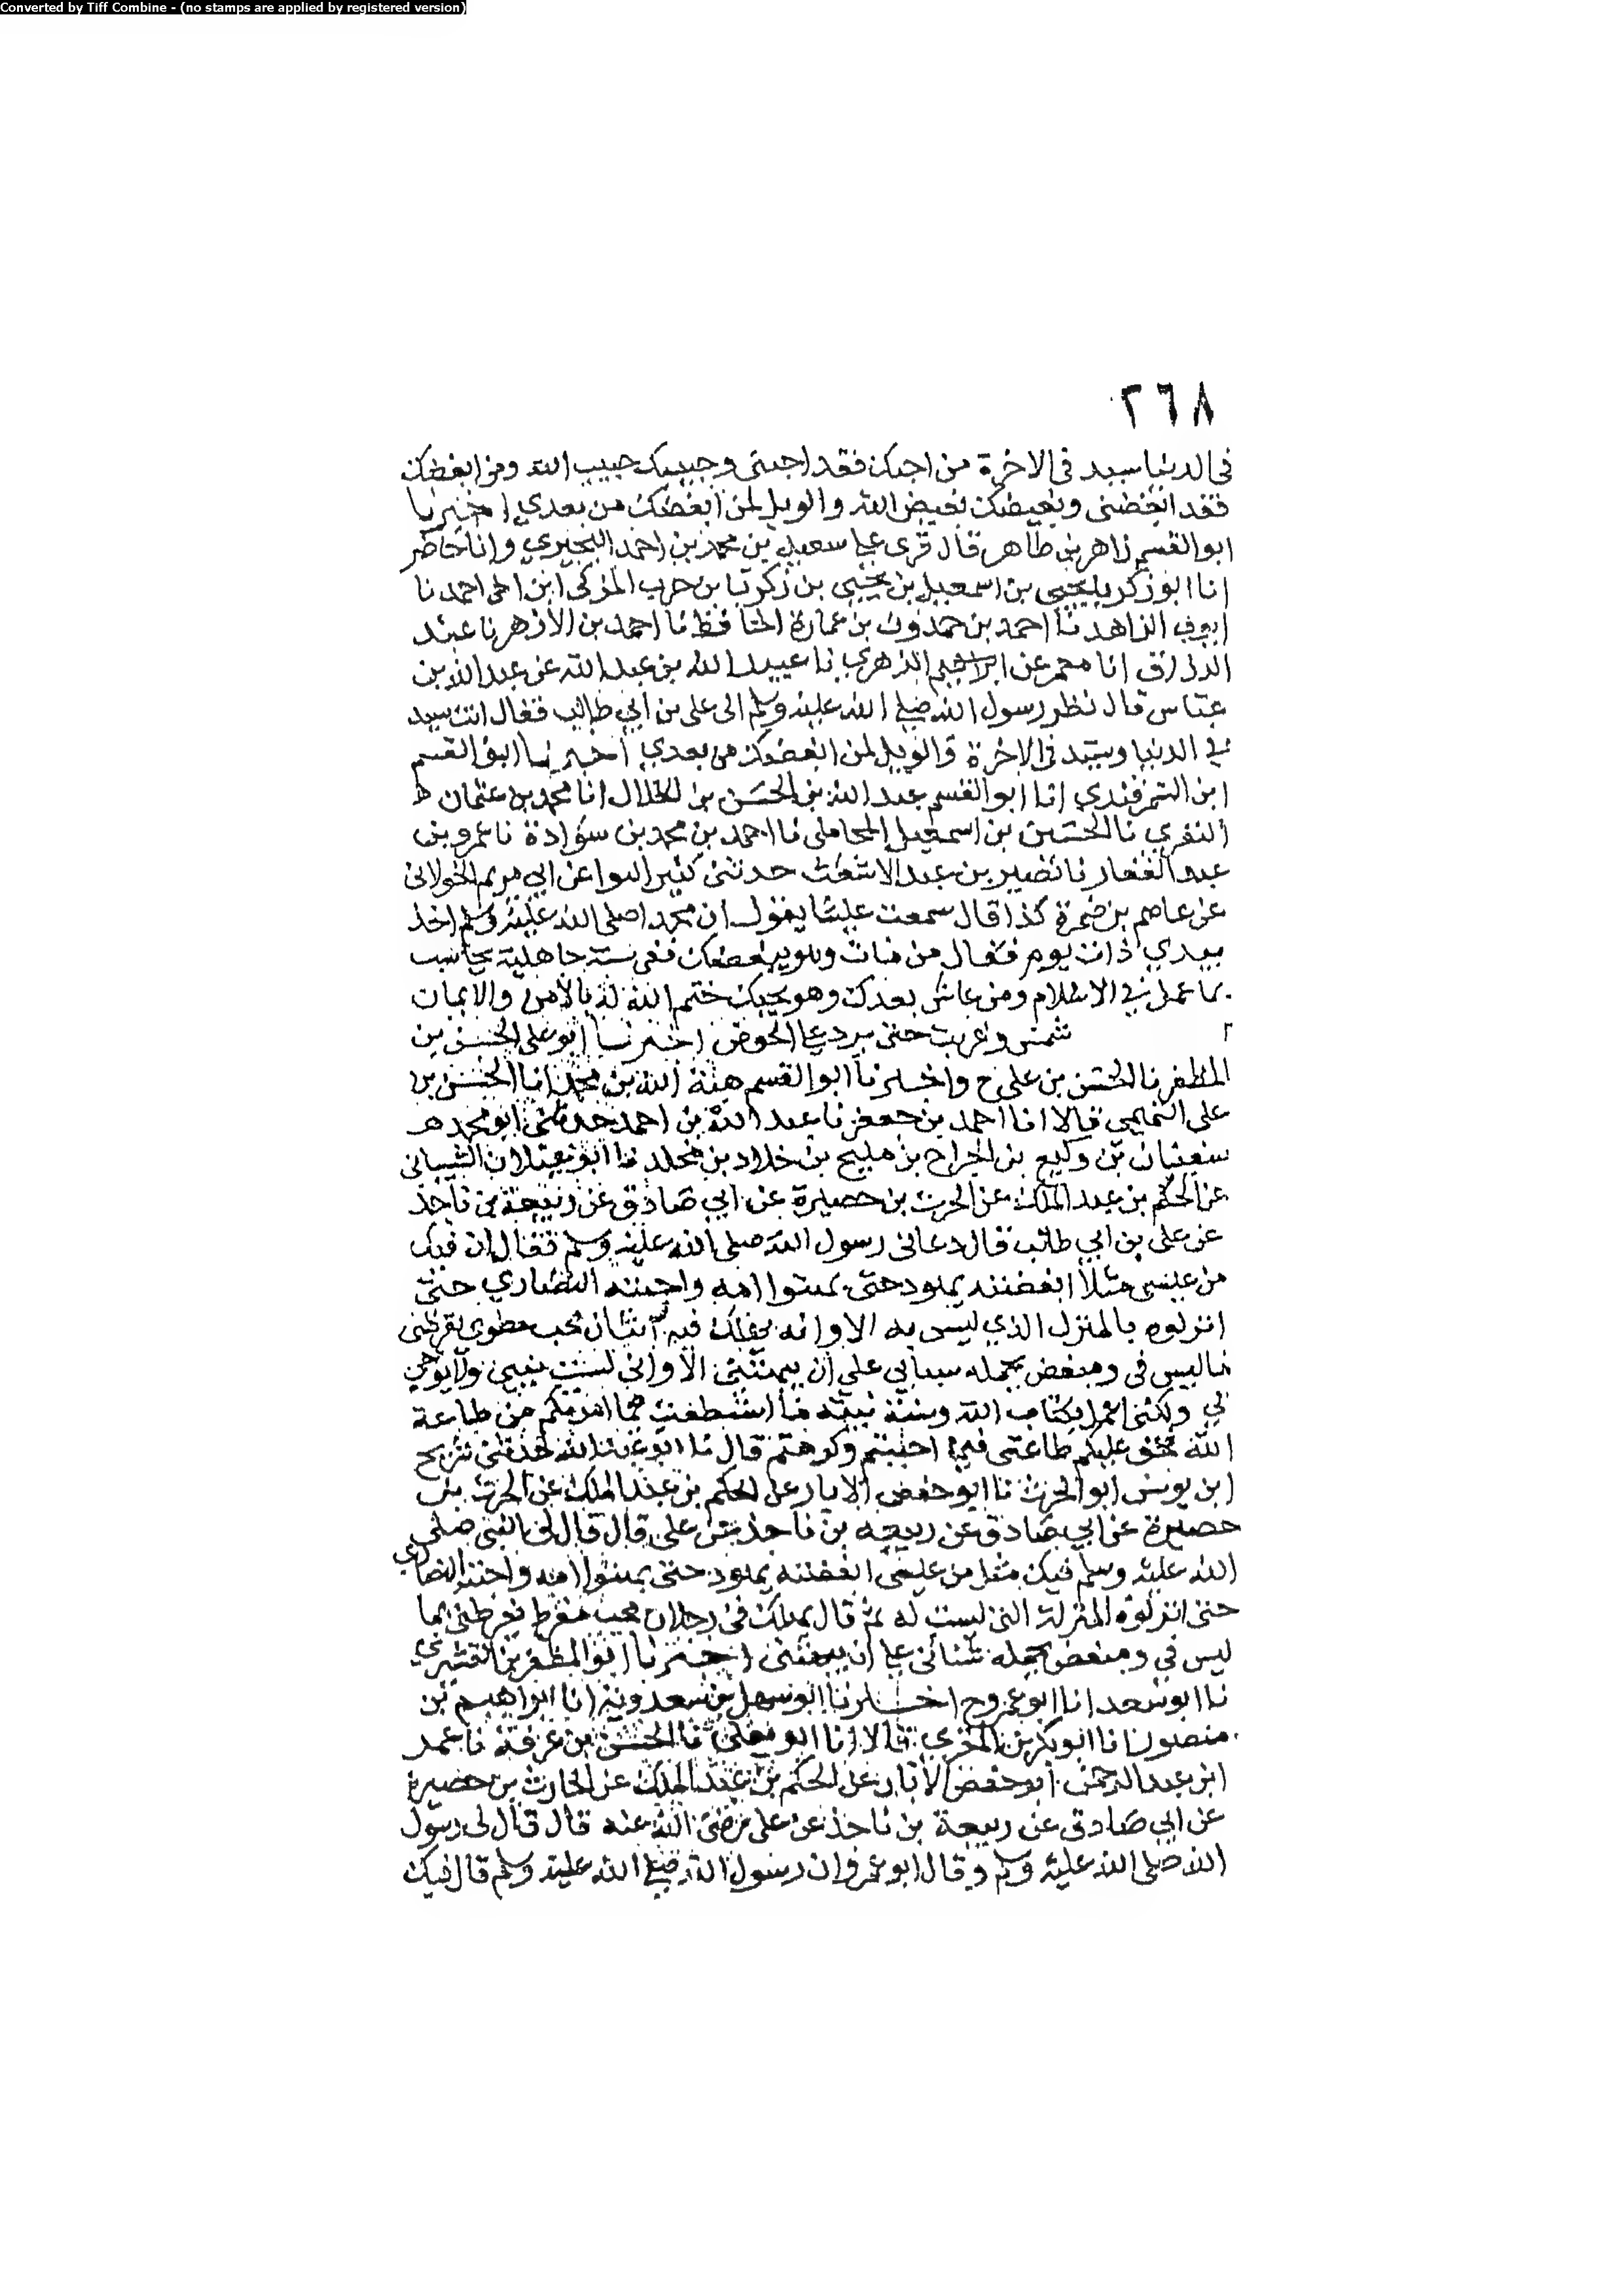 Converted by Tiff Combine - (no stamps are applied by registered version)
٢٦٨
في الدنيا سيد في الاخرة من احبك فقد احبني وحبيبك حبيب الله ومن ابغضك
فقد ابغضني وبغيضك بغيض الله والويل لمن ابغضك من بعدي اخبرنا
ابو القسم زاهر بن طاهر قال قرى على سعيد بن محمد بن احمد البحيري وانا حاضر
انا ابو زكريا يحيى بن اسمعيل بن يحيى بن زكريا بن حرب المزكي ابن اخي احمد نا
الزاهد نا احمد بن حمدون بن عمارة الحافظ نا احمد بن الازهر نا عبد
الرزاق انا معمر عن الزهري نا عبيد الله بن عبد الله عن عبد الله بن
عباس قال نظر رسول الله صلى الله عليه وسلم الى علي بن ابي طالب فقال انت سيد
في الدنيا وسيد في الاخرة والويل لمن ابغضك من بعدي اخبرنا ابو القسم
ابن السمرقندي انا ابو القسم عبد الله بن الحسن بن الخلال انا محمد بن عثمان
النفري نا الحسين بن اسمعيل المحاملي نا احمد بن محمد بن سوادة نا عمرو بن
عبد الغفار نا نصير بن عبد الاشعث حدثني كثير النوا عن ابي مريم الخولاني
عن عاصم بن ضمرة كذا قال سمعت عليا يقول ان محمدا صلى الله عليه وسلم اخذ
بيدي ذات يوم فقال من مات وهو يبغضك ففي ستة جاهلية يحاسب
بما عمل في الاسلام ومن عاش بعدك وهو يحبك ختم الله له بالامن والايمان
شمس وغربت حتى يرد على الحوض اخبرنا ابو علي الحسن بن
المظفر نا الحسن بن علي ح واخبرنا ابو القسم هبة الله بن محمد انا الحسن بن
علي التميمي قالا انا احمد بن جعفر نا عبد الله بن احمد حدثني ابو محمد
سفيان بن وكيع بن الجراح بن مليح بن خلاد بن مخلد نا ابو غيلان الشيباني
عن الحكم بن عبد الملك عن الحرث بن حصيرة عن ابي صادق عن ربيعة بن ناجذ
عن علي بن ابي طالب قال دعاني رسول الله صلى الله عليه وسلم فقال ان فيك
من عيسى مثلا ابغضته يهود حتى بهتوا امه واحبته النصاري حتى
انزلوه بالمنزل الذي ليس به الا وانه يهلك في اثنان محب مطري يقرظني
ما ليس في ومبغض يحمله شناني على ان يبهتني الا واني لست بنبي ولا يوحى
لي ولكني اعمل بكتاب الله وسنة نبيه ما استطعت فما امرتكم من طاعة
الله فحق عليكم طاعتي فيما احببتم وكرهتم قال نا ابو عبد الله حدثني سريج
ابن يونس ابو الحرث نا ابو حفص الابار عن الحكم بن عبد الملك عن الحرث بن
حصيرة عن ابي صادق عن ربيعه بن ناجذ عن علي قال قال لي النبي صلى
الله عليه وسلم فيك مثل من عيسى ابغضته يهود حتى بهتوا امه واحبته النصاري
حتى انزلوه المنزلة التي ليست له ثم قال يهلك في رجلان محب مفرط يفرطني بما
ليس في ومبغض يحمله شناني على ان يبهتني اخبرنا ابو المظفر بن القشيري
نا ابو سعد انا ابو عمرو ح اخبرنا ابو سهل بن سعدويه انا ابراهيم بن
منصور انا ابو بكر بن المقري قالا انا ابو يعلى نا الحسن بن عرفة نا عمر
ابن عبد الرحمن ابو حفص الابار عن الحكم بن عبد الملك عن الحارث بن حصيرة
عن ابي صادق عن ربيعة بن ناجذ عن علي رضى الله عنه قال قال لي رسول
الله صلى الله عليه وسلم وقال ابو عمرو ان رسول الله صلى الله عليه وسلم قال فيك